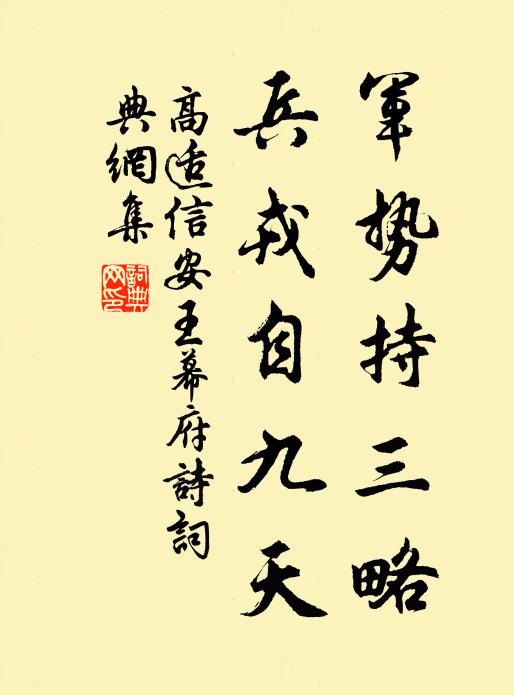 軍势持三略
兵戎自九天
高适信安王幕府詩詞
典網集
詞典
网印